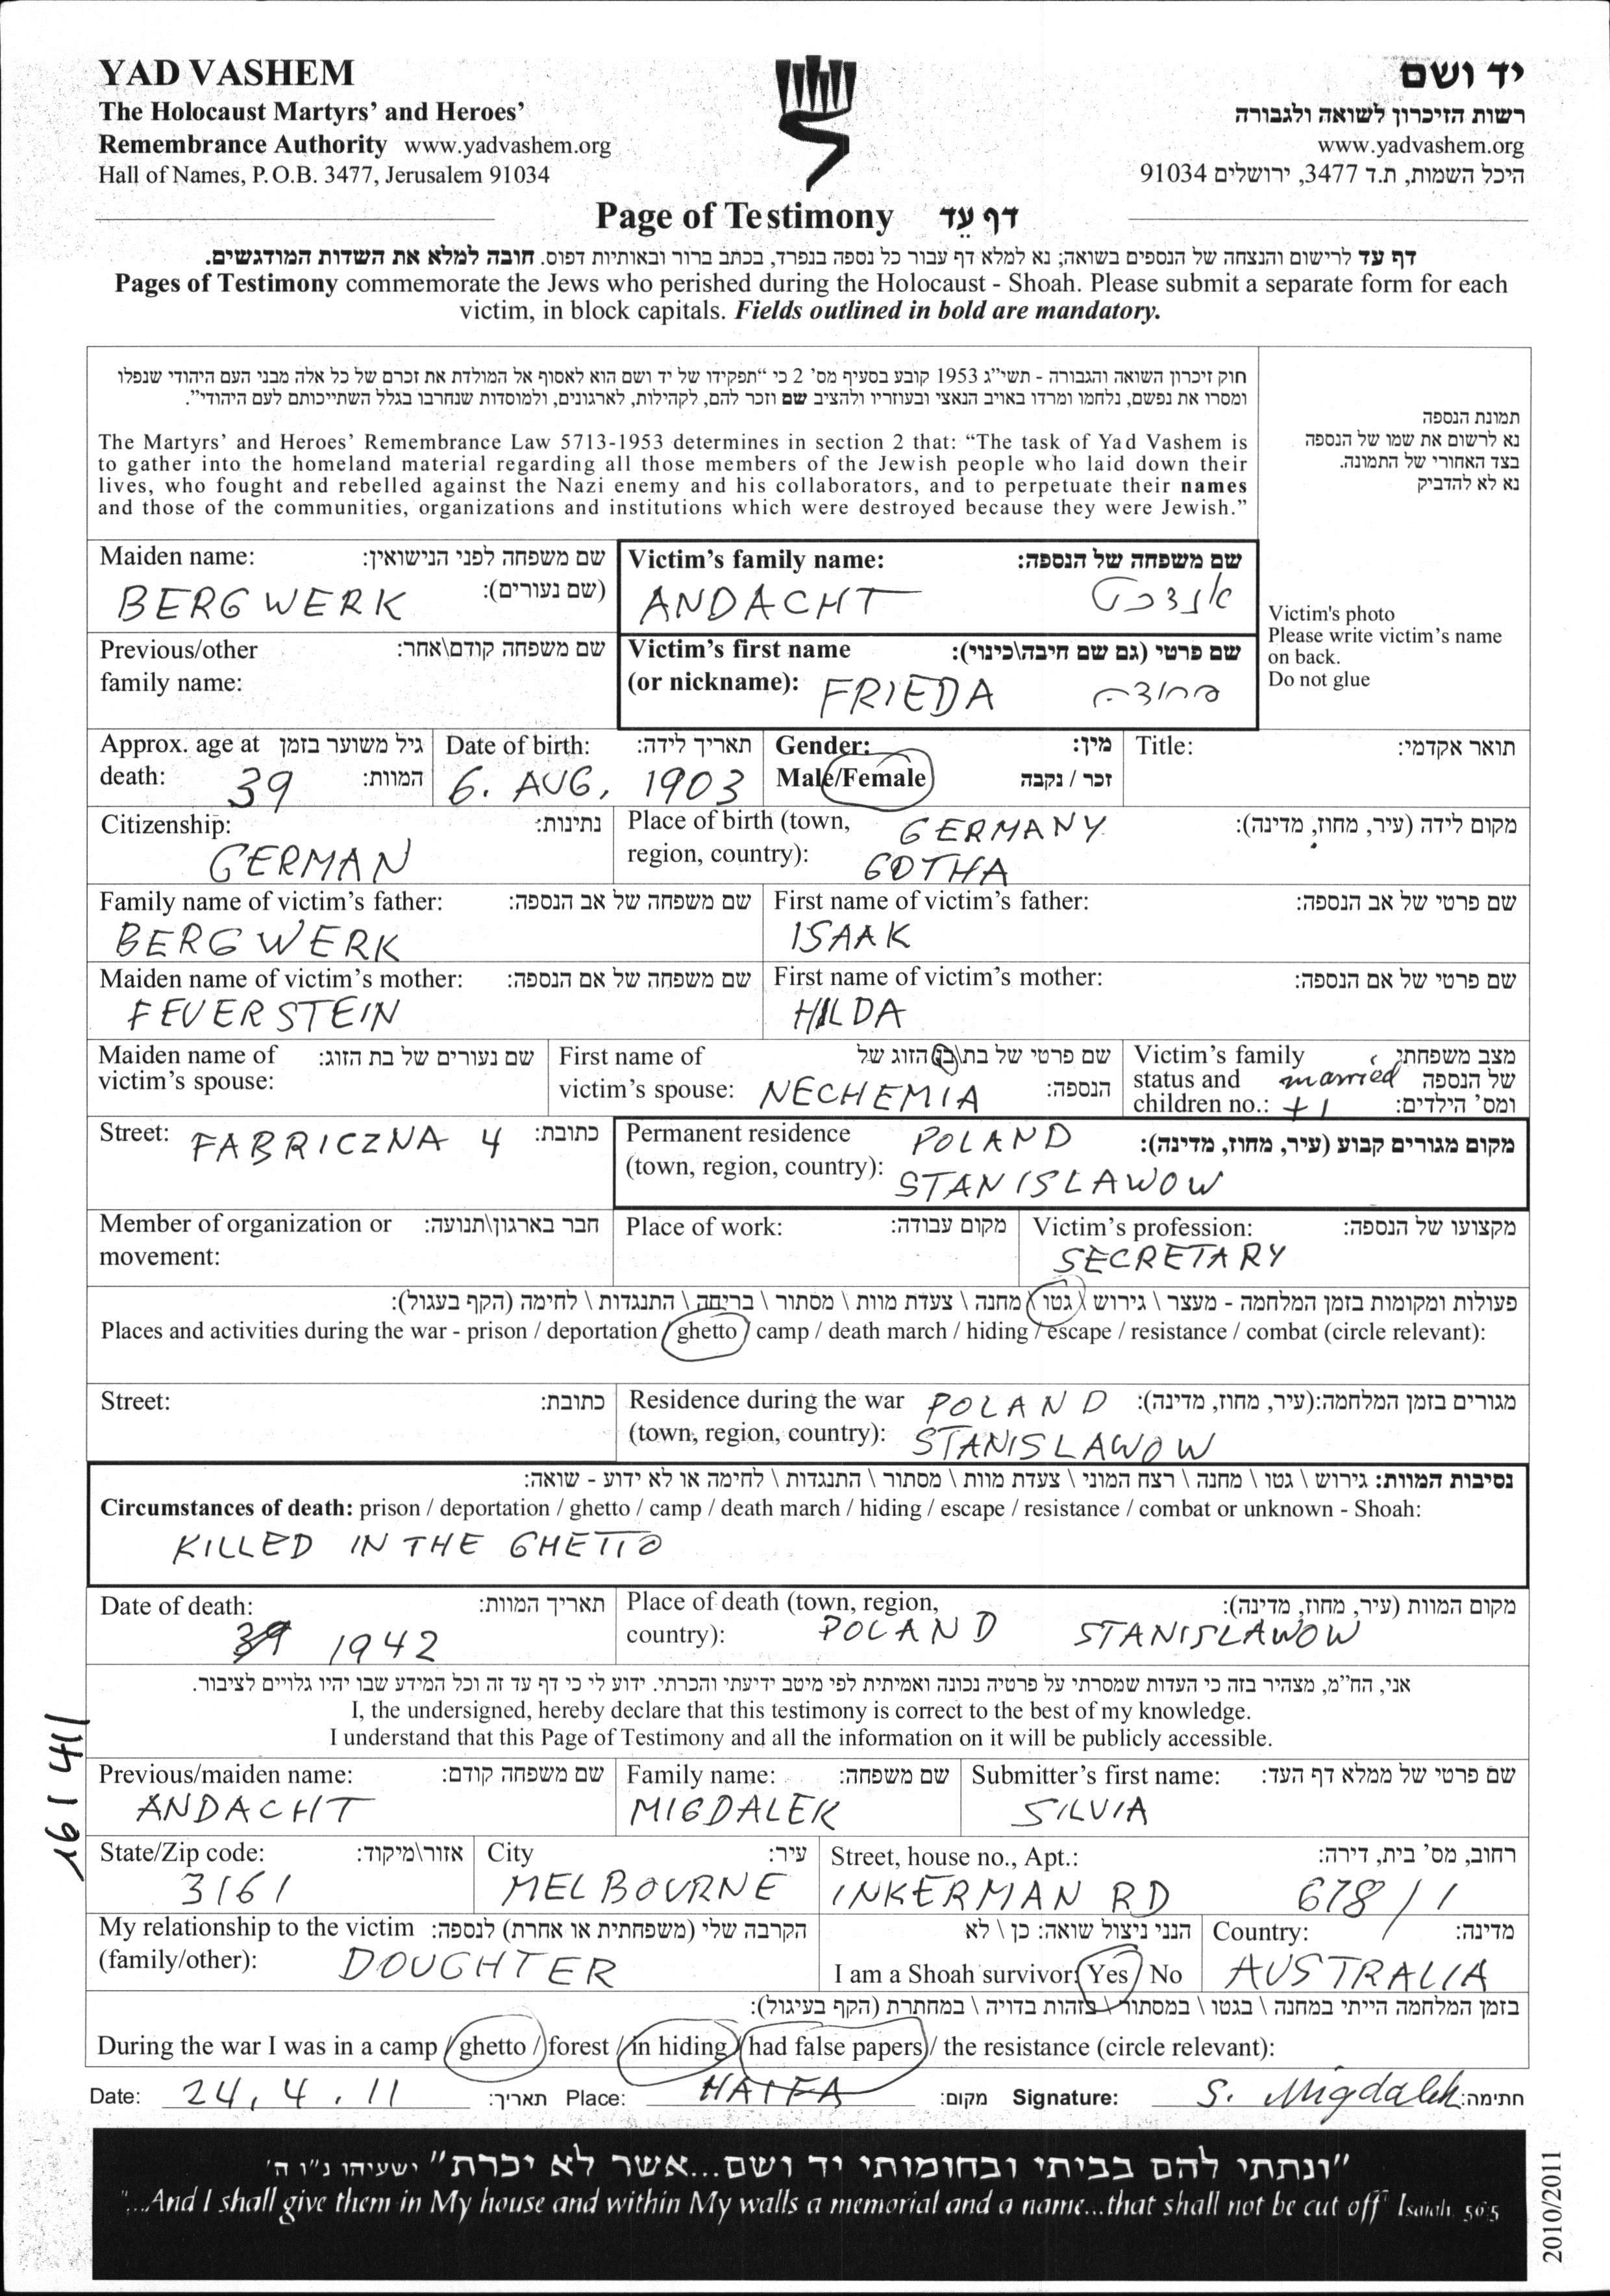 YAD VASHEM
The Holocaust Martyrs' and Heroes'
Remembrance Authority www.yadvashem.org
Hall of Names, P.O.B. 3477, Jerusalem 91034
יד ושם
רשות הזיכרון לשואה ולגבורה
www.yadvashem.org
היכל השמות, ת.ד 3477, ירושלים 91034
Page of Testimony דף עֵד
דף עד לרישום והנצחה של הנספים בשואה; נא למלא דף עבור כל נספה בנפרד, בכתב ברור ובאותיות דפוס. חובה למלא את השדות המודגשים.
Pages of Testimony commemorate the Jews who perished during the Holocaust - Shoah. Please submit a separate form for each
victim, in block capitals. Fields outlined in bold are mandatory.
חוק זיכרון השואה והגבורה - תשי"ג 1953 קובע בסעיף מס' 2 כי "תפקידו של יד ושם הוא לאסוף אל המולדת את זכרם של כל אלה מבני העם היהודי שנפלו
ומסרו את נפשם, נלחמו ומרדו באויב הנאצי ובעוזריו ולהציב שם וזכר להם, לקהילות, לארגונים, ולמוסדות שנחרבו בגלל השתייכותם לעם היהודי".
The Martyrs' and Heroes' Remembrance Law 5713-1953 determines in section 2 that: "The task of Yad Vashem is
to gather into the homeland material regarding all those members of the Jewish people who laid down their
lives, who fought and rebelled against the Nazi enemy and his collaborators, and to perpetuate their names
and those of the communities, organizations and institutions which were destroyed because they were Jewish."
תמונת הנספה
נא לרשום את שמו של הנספה
בצד האחורי של התמונה.
נא לא להדביק
Victim's photo
Please write victim's name
on back.
Do not glue
Maiden name: שם משפחה לפני הנישואין:
(שם נעורים):
BERGWERK
Victim's family name: שם משפחה של הנספה:
ANDACHT אנדכט
Previous/other שם משפחה קודם\אחר:
family name:
Victim's first name שם פרטי (גם שם חיבה\כינוי):
(or nickname): FRIEDA
Approx. age at גיל משוער בזמן
death: 39 המוות:
Date of birth: תאריך לידה:
6. AUG, 1903
Gender: מין:
Male/Female זכר / נקבה
Title: תואר אקדמי:
Citizenship: נתינות:
GERMAN
Place of birth (town, GERMANY מקום לידה (עיר, מחוז, מדינה):
region, country): GOTHA
Family name of victim's father: שם משפחה של אב הנספה:
BERGWERK
First name of victim's father: שם פרטי של אב הנספה:
ISAAK
Maiden name of victim's mother: שם משפחה של אם הנספה:
FEUERSTEIN
First name of victim's mother: שם פרטי של אם הנספה:
HILDA
Maiden name of שם נעורים של בת הזוג:
victim's spouse:
First name of שם פרטי של בת\בן הזוג של
victim's spouse: NECHEMIA הנספה:
Victim's family מצב משפחתי
status and married של הנספה
children no.: +1 ומס' הילדים:
Street: FABRICZNA 4 כתובת:
Permanent residence POLAND מקום מגורים קבוע (עיר, מחוז, מדינה):
(town, region, country): STANISLAWOW
Member of organization or חבר בארגון\תנועה:
movement:
Place of work: מקום עבודה:
Victim's profession: מקצועו של הנספה:
SECRETARY
פעולות ומקומות בזמן המלחמה - מעצר \ גירוש \ גטו \ מחנה \ צעדת מוות \ מסתור \ בריחה \ התנגדות \ לחימה (הקף בעגול):
Places and activities during the war - prison / deportation / ghetto / camp / death march / hiding / escape / resistance / combat (circle relevant):
Street: כתובת:
Residence during the war POLAND מגורים בזמן המלחמה:(עיר, מחוז, מדינה):
(town, region, country): STANISLAWOW
נסיבות המוות: גירוש \ גטו \ מחנה \ רצח המוני \ צעדת מוות \ מסתור \ התנגדות \ לחימה או לא ידוע - שואה:
Circumstances of death: prison / deportation / ghetto / camp / death march / hiding / escape / resistance / combat or unknown - Shoah:
KILLED IN THE GHETTO
Date of death: תאריך המוות:
39 1942
Place of death (town, region, מקום המוות (עיר, מחוז, מדינה):
country): POLAND STANISLAWOW
אני, הח"מ, מצהיר בזה כי העדות שמסרתי על פרטיה נכונה ואמיתית לפי מיטב ידיעתי והכרתי. ידוע לי כי דף עד זה וכל המידע שבו יהיו גלויים לציבור.
I, the undersigned, hereby declare that this testimony is correct to the best of my knowledge.
I understand that this Page of Testimony and all the information on it will be publicly accessible.
Previous/maiden name: שם משפחה קודם:
ANDACHT
Family name: שם משפחה:
MIGDALEK
Submitter's first name: שם פרטי של ממלא דף העד:
SILVIA
State/Zip code: אזור\מיקוד:
3161
City עיר:
MELBOURNE
Street, house no., Apt.: רחוב, מס' בית, דירה:
INKERMAN RD 678/1
My relationship to the victim הקרבה שלי (משפחתית או אחרת) לנספה:
(family/other): DOUGHTER
הנני ניצול שואה: כן \ לא
I am a Shoah survivor: Yes / No
Country: מדינה:
AUSTRALIA
בזמן המלחמה הייתי במחנה \ בגטו \ במסתור \ בזהות בדויה \ במחתרת (הקף בעיגול):
During the war I was in a camp / ghetto / forest / in hiding / had false papers / the resistance (circle relevant):
Date: 24.4.11 תאריך: Place: HAIFA מקום: Signature: S. Migdalek חתימה:
"ונתתי להם בביתי ובחומותי יד ושם...אשר לא יכרת" ישעיהו נ"ו ה'
"...And I shall give them in My house and within My walls a memorial and a name...that shall not be cut off" Isaiah 56:5
2010/2011